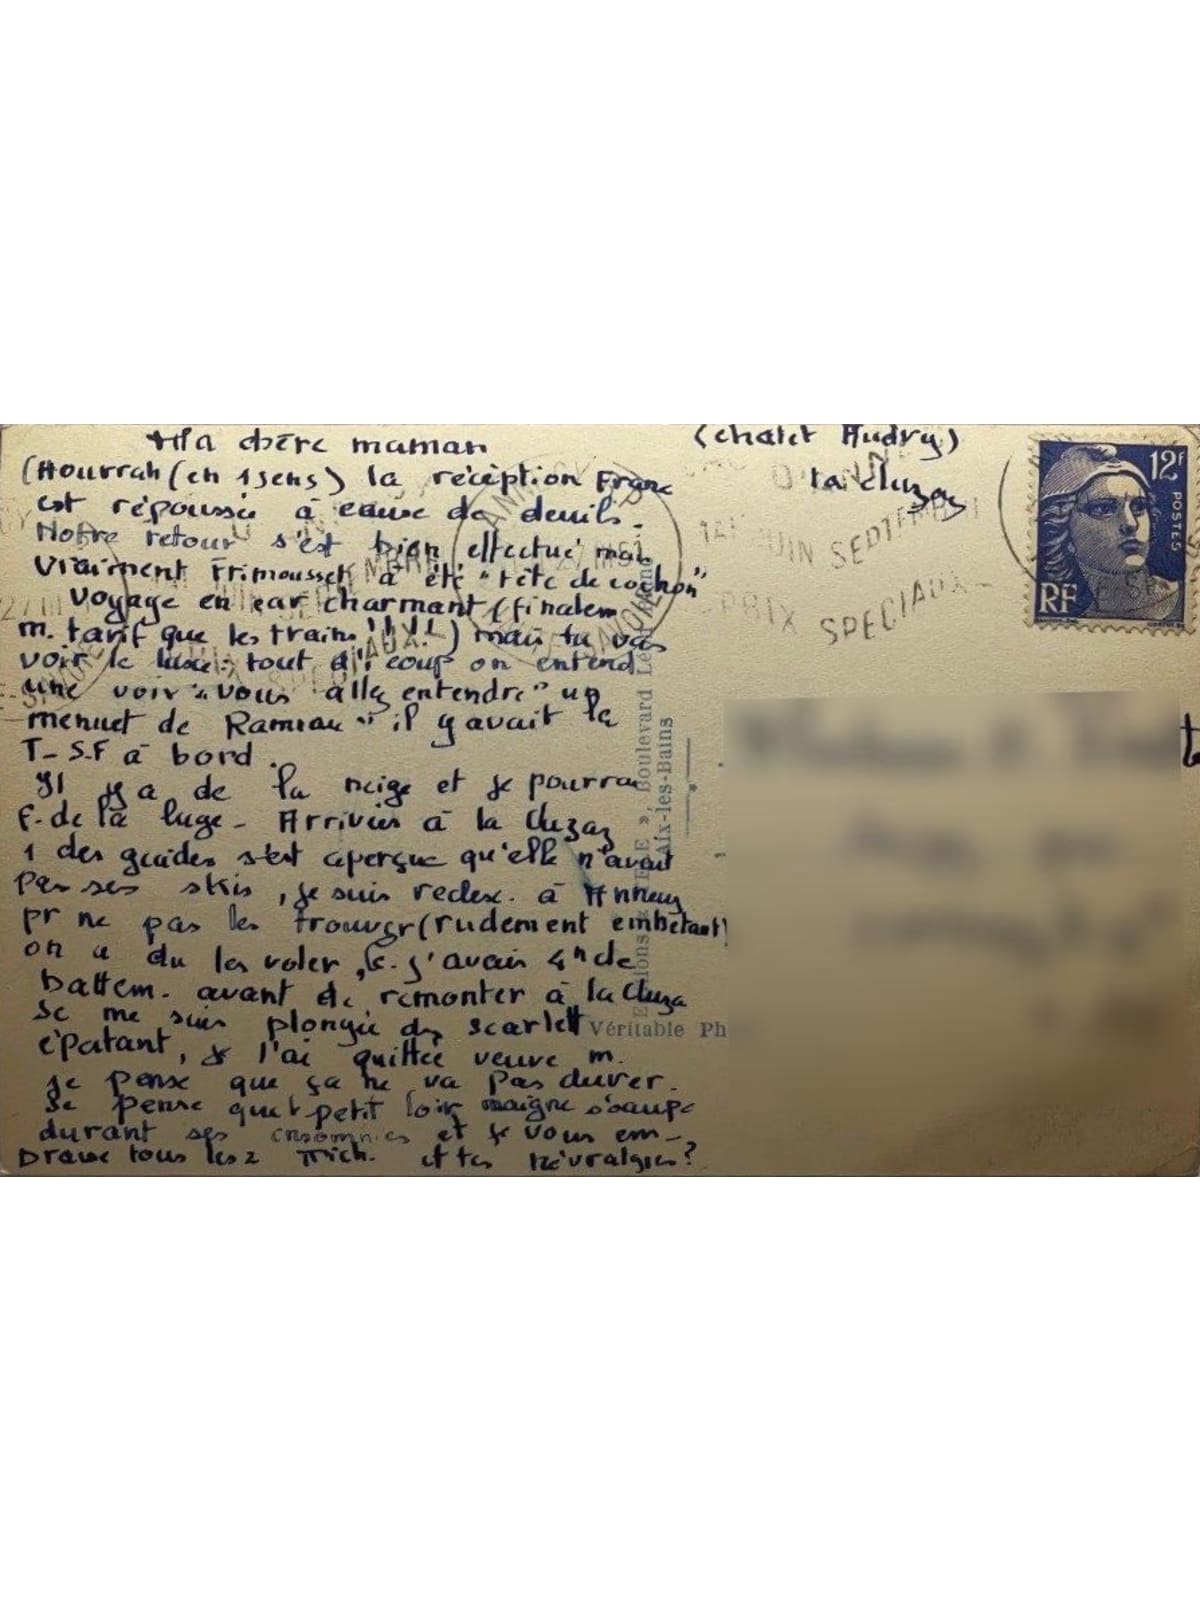 Ma chère maman
(Hourrah (en 1 sens) la réception Franc
est répoussée à cause de deuils.
Notre retour s'est bien effectué mais
vraiment Frimousset a été "tête de cochon"
Voyage en car charmant (finalem
m. tarif que les trains !!!!) mais tu vas
voir le luxe: tout d'1 coup on entend
une voix "vous allez entendre" un
menuet de Rameau" il y avait la
T-S.F à bord.
Il y a de la neige et je pourrai
f. de la luge - Arrivées à la Cluzaz
1 des guides s'est aperçue qu'elle n'avait
pas ses skis, je suis redesc. à Annecy
pr ne pas les trouver (rudement embêtant)
on a du les voler, j'avais 4h de
battem. avant de remonter à la Cluza
Je me suis plongée ds Scarlett
épatant, je l'ai quittée veuve m.
je pense que ça ne va pas durer.
Je pense que l petit loir maigre
durant ses insomnies et je vous em-
brasse tous les 2 Mich. et tes névralgies?
(chalet Audry)
La Cluzaz
1ER JUIN SEPTEMBRE
PRIX SPECIAUX
12F
POSTES
RF
Boulevard
Aix-les-Bains
Véritable Ph